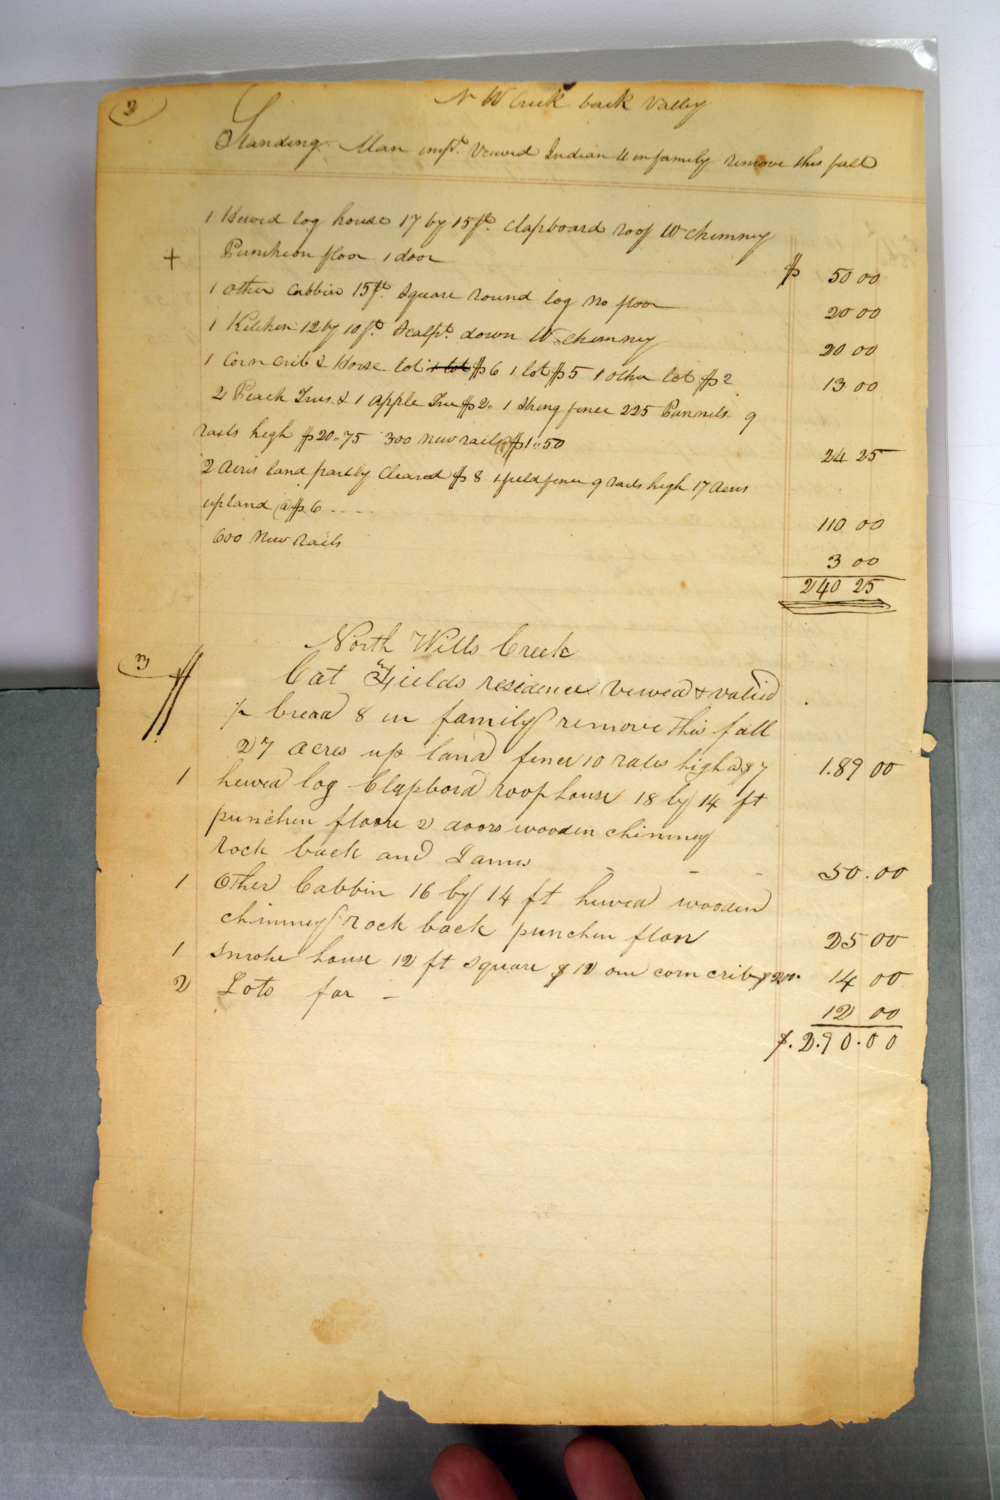 2
N W Creek back valley
Standing Man impt. Viewed Indian 4 in family remove this fall
1 Hewed log house 17 by 15 ft. clapboard roof W chimney
+ Puncheon floor 1 door $ 50 00
1 other cabbin 15 ft. square round log no floor 20 00
1 Kitchen 12 by 10 ft. Scalpt. down W chimney 20 00
1 Corn crib & Horse lot 1 lot $6 1 lot $5 1 other lot $2 13 00
2 Peach Trees & 1 apple Tree $2.. 1 String fence 225 Pannels 9
rails high $20..75 300 new rails @ $1..50 24 25
2 Acres land partly cleared $8 1 field fence 9 rails high 17 Acres
upland @ $6 .... 110 00
600 New rails 3 00
240 25
3
North Wills Creek
Cat Fields residence vewed & valied
breed 8 in family remove this fall
27 acres up land fence 10 rales high @ $7 1.89 00
1 hewed log Clapbord roof house 18 by 14 ft
punchen floore 2 doors wooden chimney
rock back and Jams - - 50.00
1 Other Cabbin 16 by 14 ft hewed wooden
chimney rock back punchen flore 25 00
1 Smoke house 12 ft square $12 one corn crib $2.00. 14 00
2 Lots for - 12 00
$.2.90.00